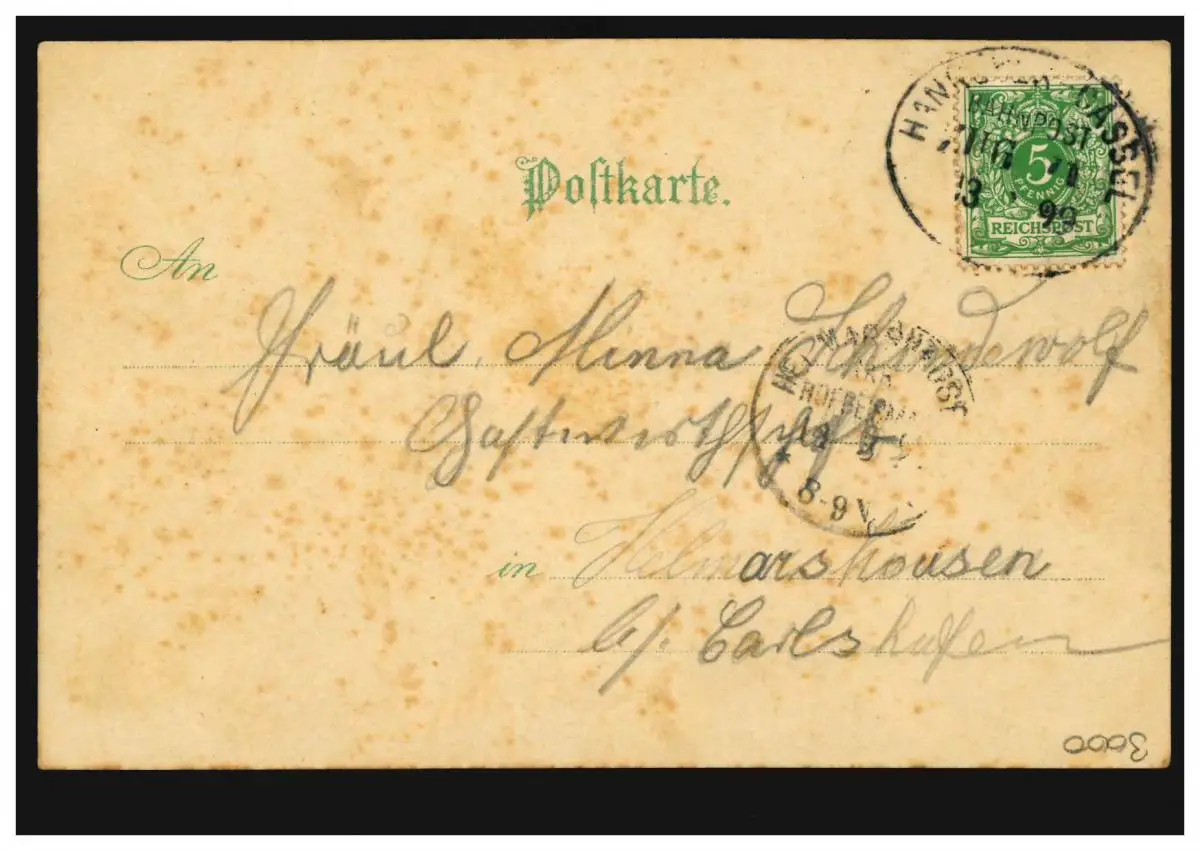 HANNOVER CASSEL
BAHNPOST
ZUG 71
99
5
PFENNIG
REICHSPOST
Postkarte.
An
Fräul. Minna Schindewolf
HELMARSHAUSEN
Gastwirthschaft
8-9 V
in Helmarshausen
b/. Carlshafen
3000